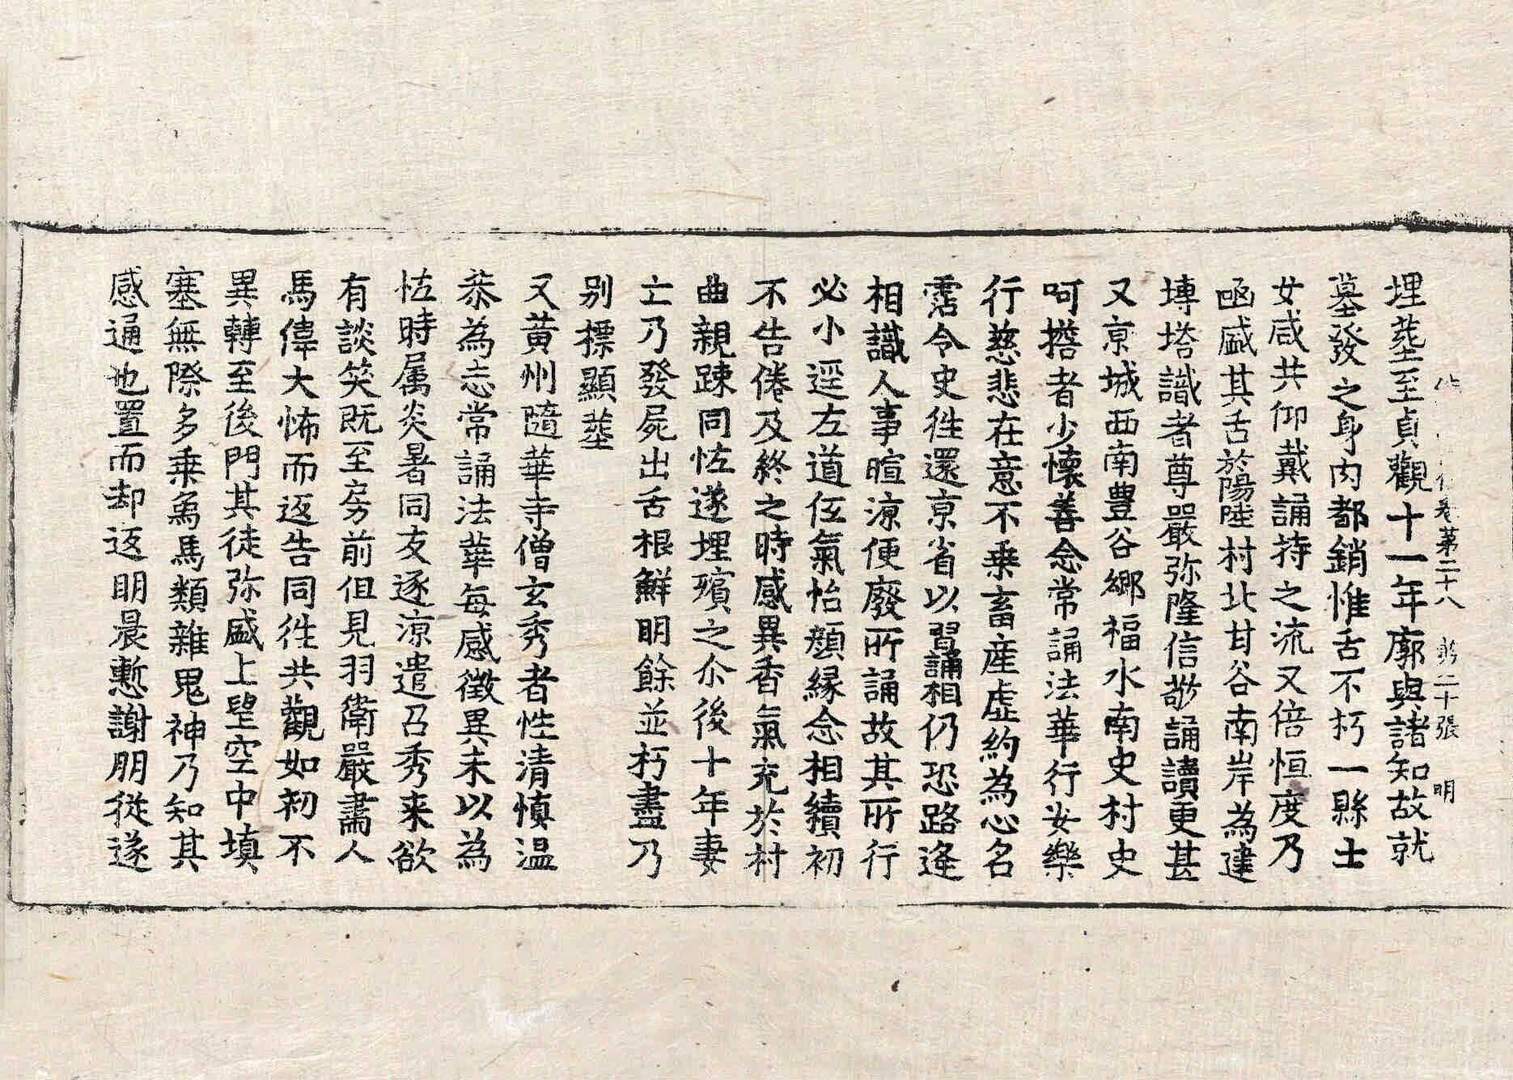 埋塟至貞觀十一年廓與諸知故就
卷第二十八 二十張 明
墓發之身內都銷惟舌不朽一縣士
女咸共仰戴誦持之流又倍恒度乃
凾盛其舌於陽陸村北甘谷南岸為建
塼塔識者尊嚴弥隆信敬誦讀更甚
又京城西南豊谷鄉福水南史村史
呵擔者少懷善念常誦法華行安樂
行慈悲在意不乗畜産虛約為心名
霑令史徃還京省以習誦相仍恐路逢
相識人事暄涼便廢所誦故其所行
必小逕左道伍氣怡顏緣念相續初
不告倦及終之時感異香氣充於村
曲親踈同恠遂埋殯之尒後十年妻
亡乃發屍出舌根鮮明餘並朽盡乃
別標顯塟
又黃州隨華寺僧玄秀者性清慎溫
恭為志常誦法華每感徵異未以為
恠時属炎暑同友逐涼遣召秀来欲
有談笑既至房前但見羽衛嚴肅人
馬偉大怖而返告同徃共觀如初不
異轉至後門其徒弥盛上望空中填
塞無際多乗象馬類雜鬼神乃知其
感通也置而却返明晨慙謝朋從遂